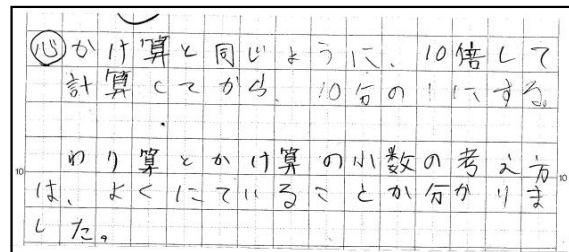 心 かけ算と同じように、10倍して
計算してから、10分の1にする。
わり算とかけ算の小数の考え方
10
は、よくにていることか分かりま
10
した。